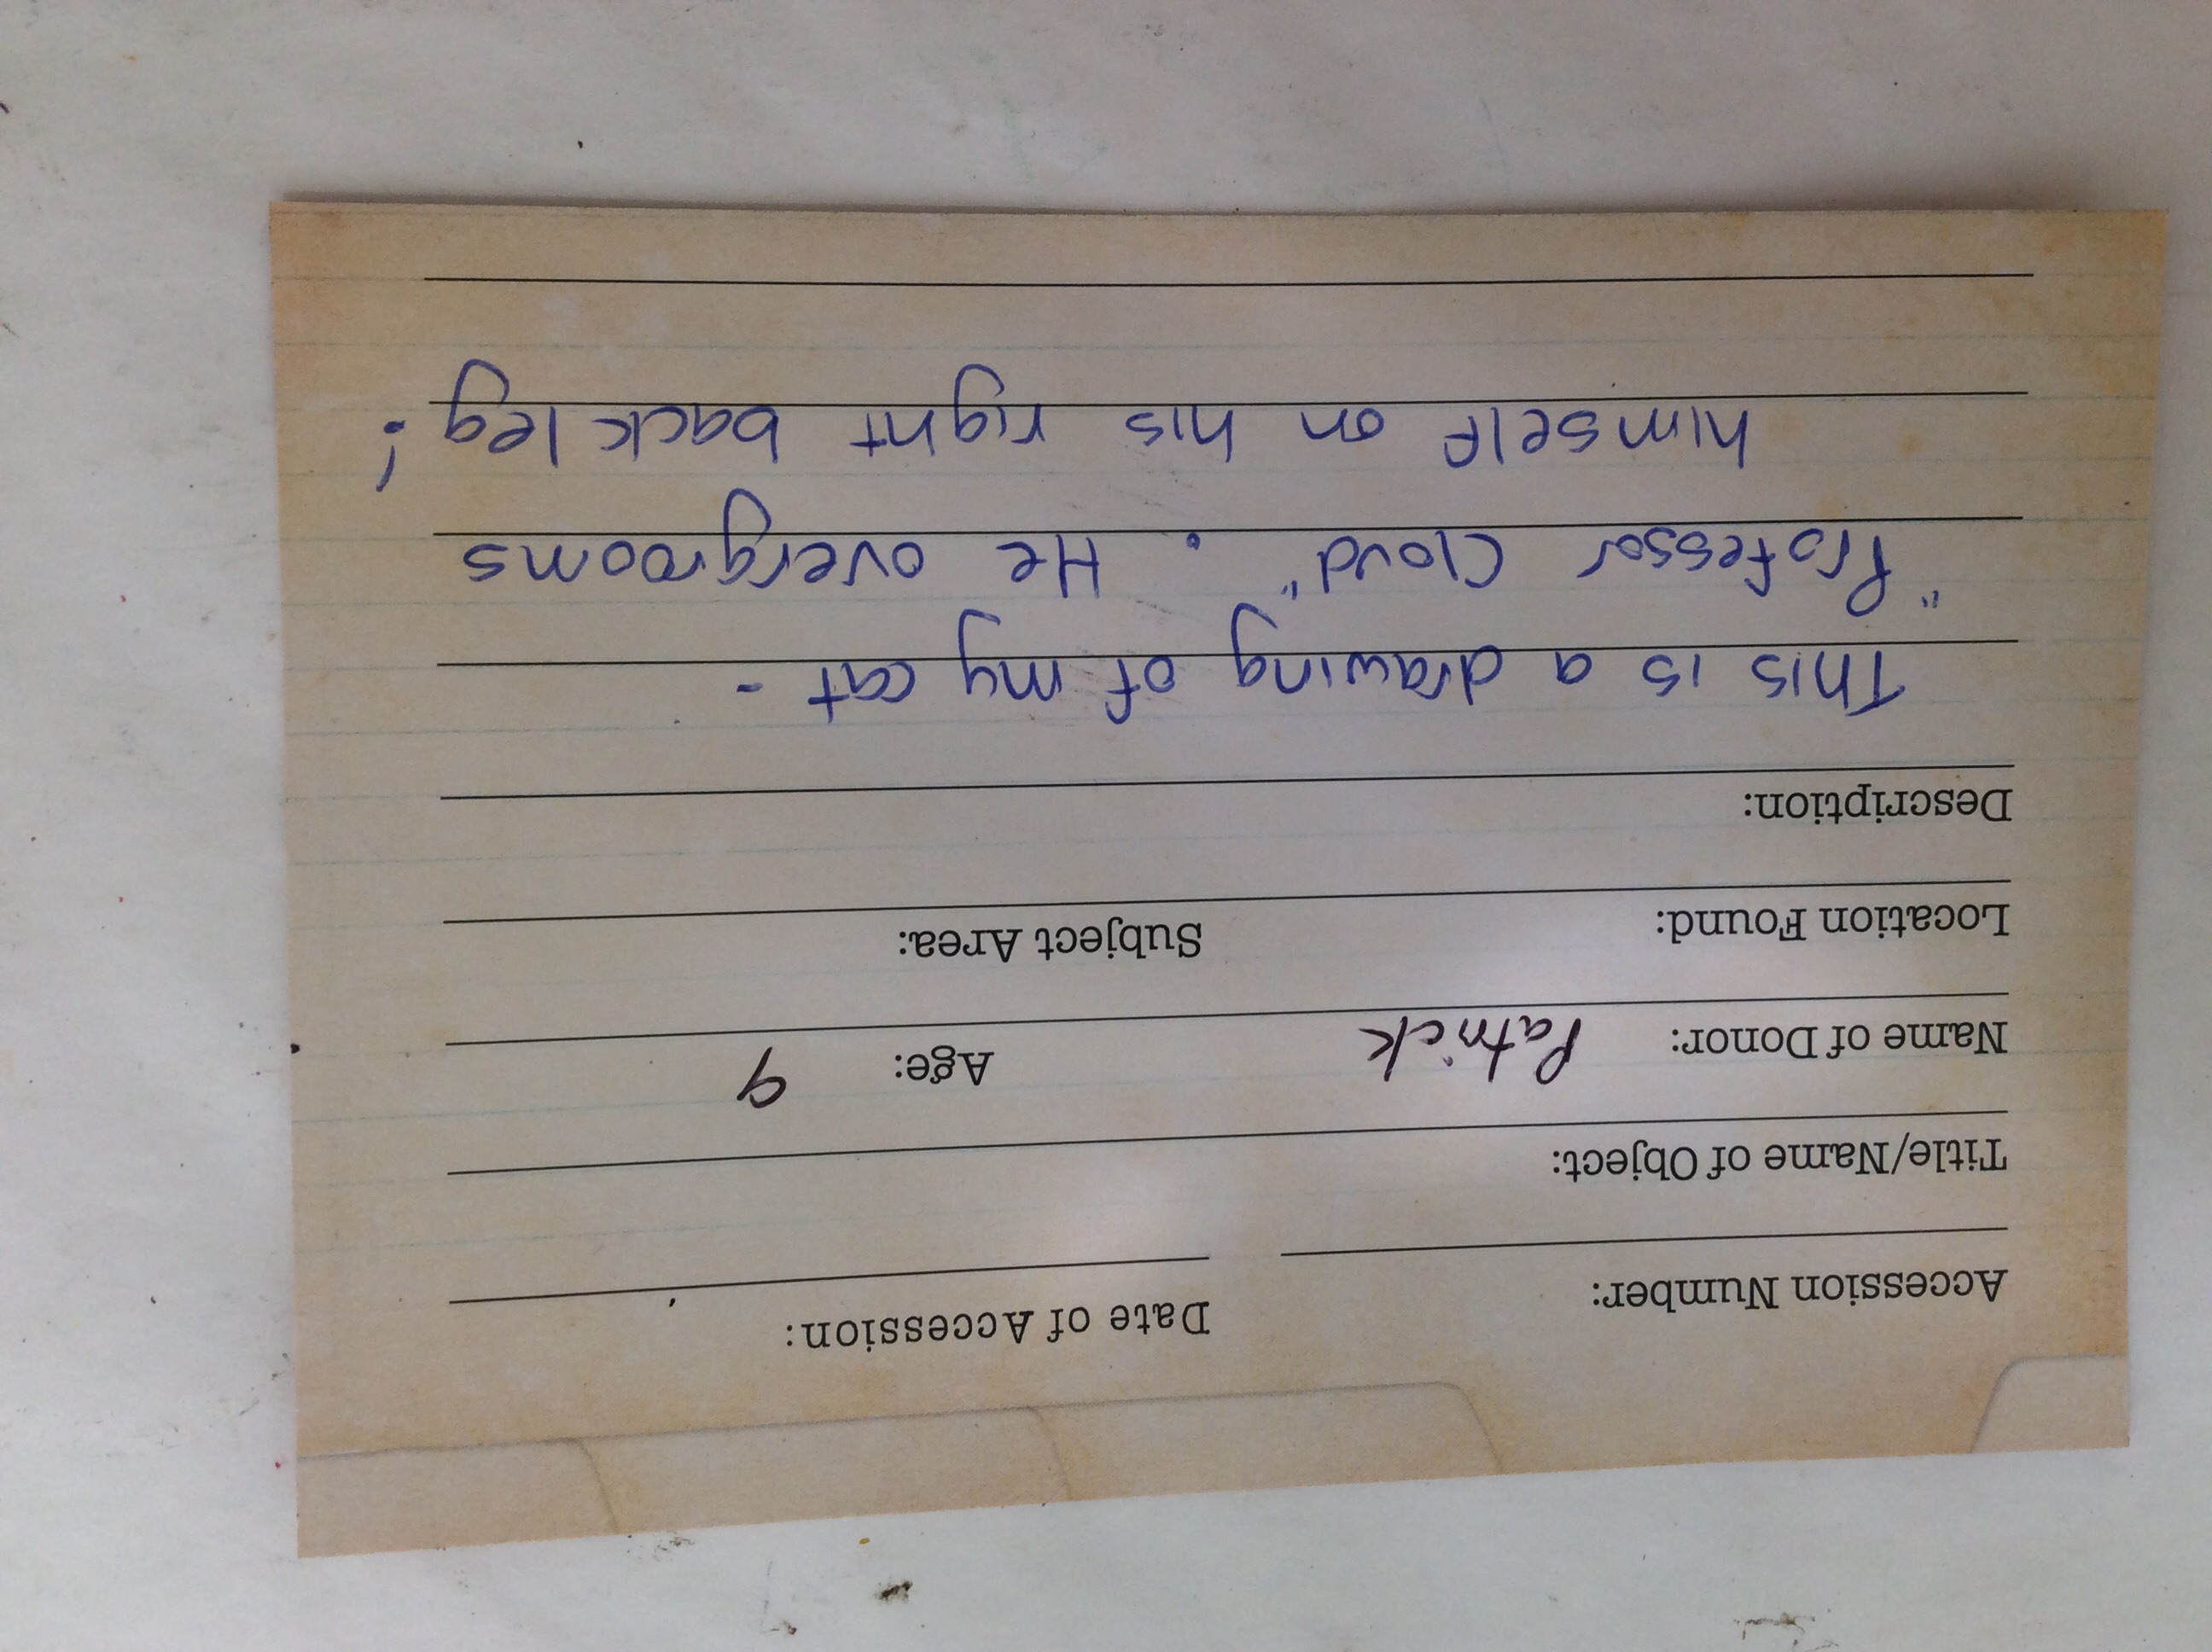 Accession Number: Date of Accession:
Title/Name of Object:
Name of Donor: Patrick Age: 9
Location Found: Subject Area:
Description:
This is a drawing of my cat -
"Professor Cloud". He overgrooms
himself on his right back leg!